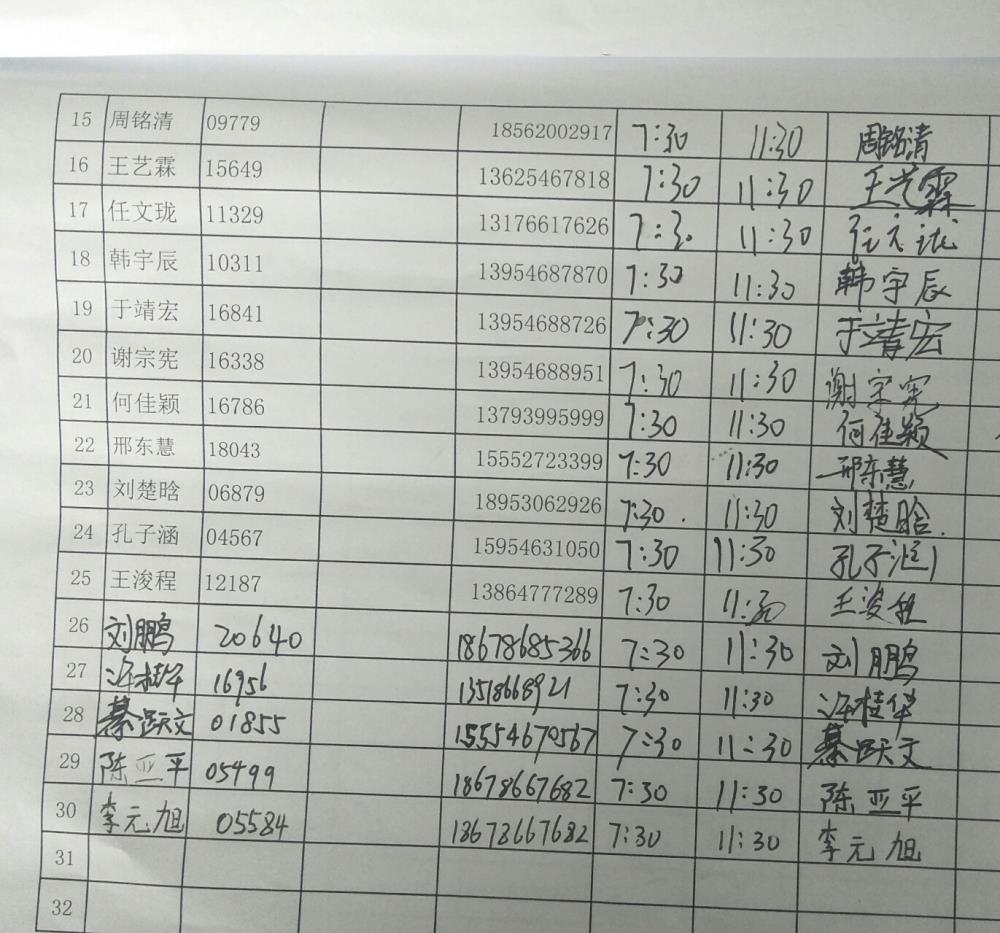 15 周铭清 09779 18562002917 7:30 11:30 周铭清
16 王艺霖 15649 13625467818 7:30 11:30 王艺霖
17 任文珑 11329 13176617626 7:30 11:30 任文珑
18 韩宇辰 10311 13954687870 7:30 11:30 韩宇辰
19 于靖宏 16841 13954688726 7:30 11:30 于靖宏
20 谢宗宪 16338 13954688951 7:30 11:30 谢宗宪
21 何佳颖 16786 13793995999 7:30 11:30 何佳颖
22 邢东慧 18043 15552723399 7:30 11:30 邢东慧
23 刘楚晗 06879 18953062926 7:30. 11:30 刘楚晗.
24 孔子涵 04567 15954631050 7:30 11:30 孔子涵
25 王浚程 12187 13864777289 7:30 11:30 王浚程
26 刘鹏 20640 18678685366 7:30 11:30 刘鹏
27 许桂华 16956 13518668921 7:30 11:30 许桂华
28 綦跃文 01855 15554679567 7:30 11:30 綦跃文
29 陈亚平 05499 18678667682 7:30 11:30 陈亚平
30 李元旭 05584 18678667682 7:30 11:30 李元旭
31
32